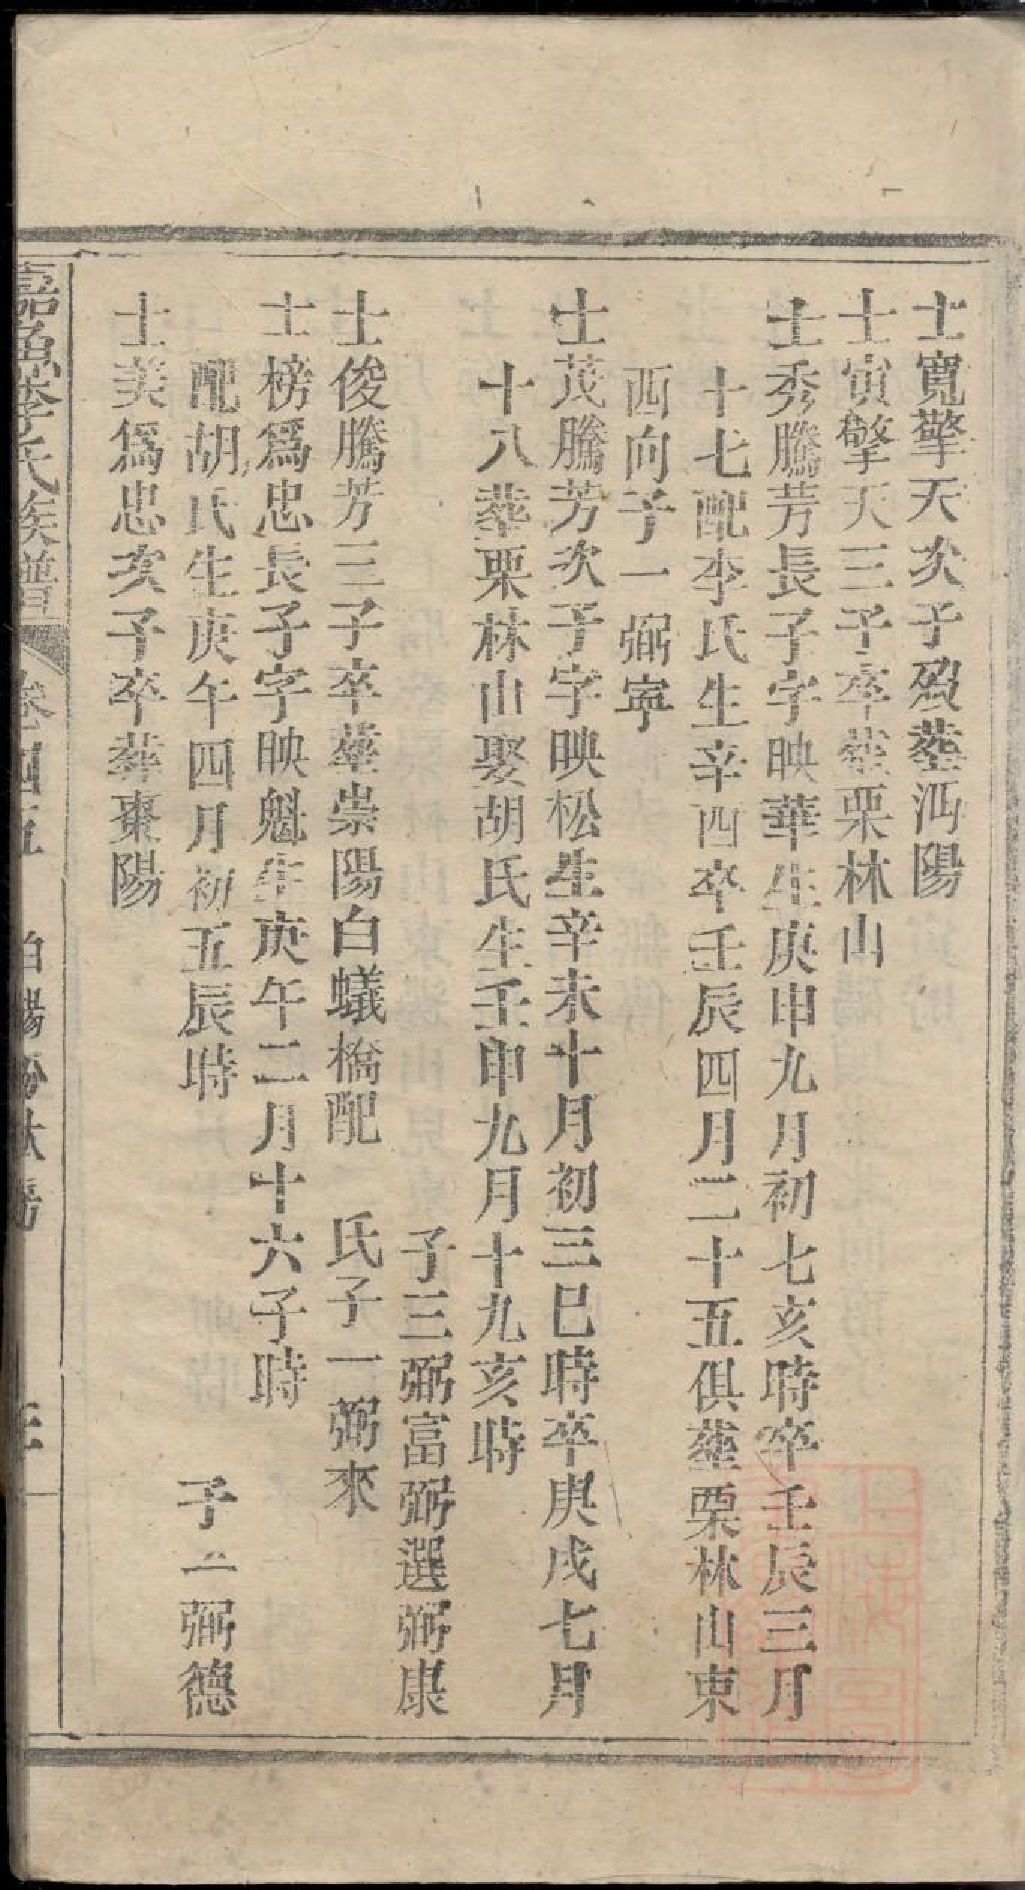 士寬擎天次子歿塟沔陽
士寅擎天三子卒塟栗林山
士秀騰芳長子字映華生庚申九月初七亥時卒壬辰三月
十七配李氏生辛酉卒壬辰四月二十五俱塟栗林山東
西向子一弼寧
士茂騰芳次子字映松生辛未十月初三巳時卒庚戌七月
十八塟栗林山娶胡氏生壬申九月十九亥時
子三弼富弼選弼康
士俊騰芳三子卒塟崇陽白蟻橋配 氏子一弼來
士榜為忠長子字映魁生庚午二月十六子時
配胡氏生庚午四月初五辰時 子一弼德
士美為忠次子卒塟棗陽
嘉魚李氏族譜 卷四五 白楊